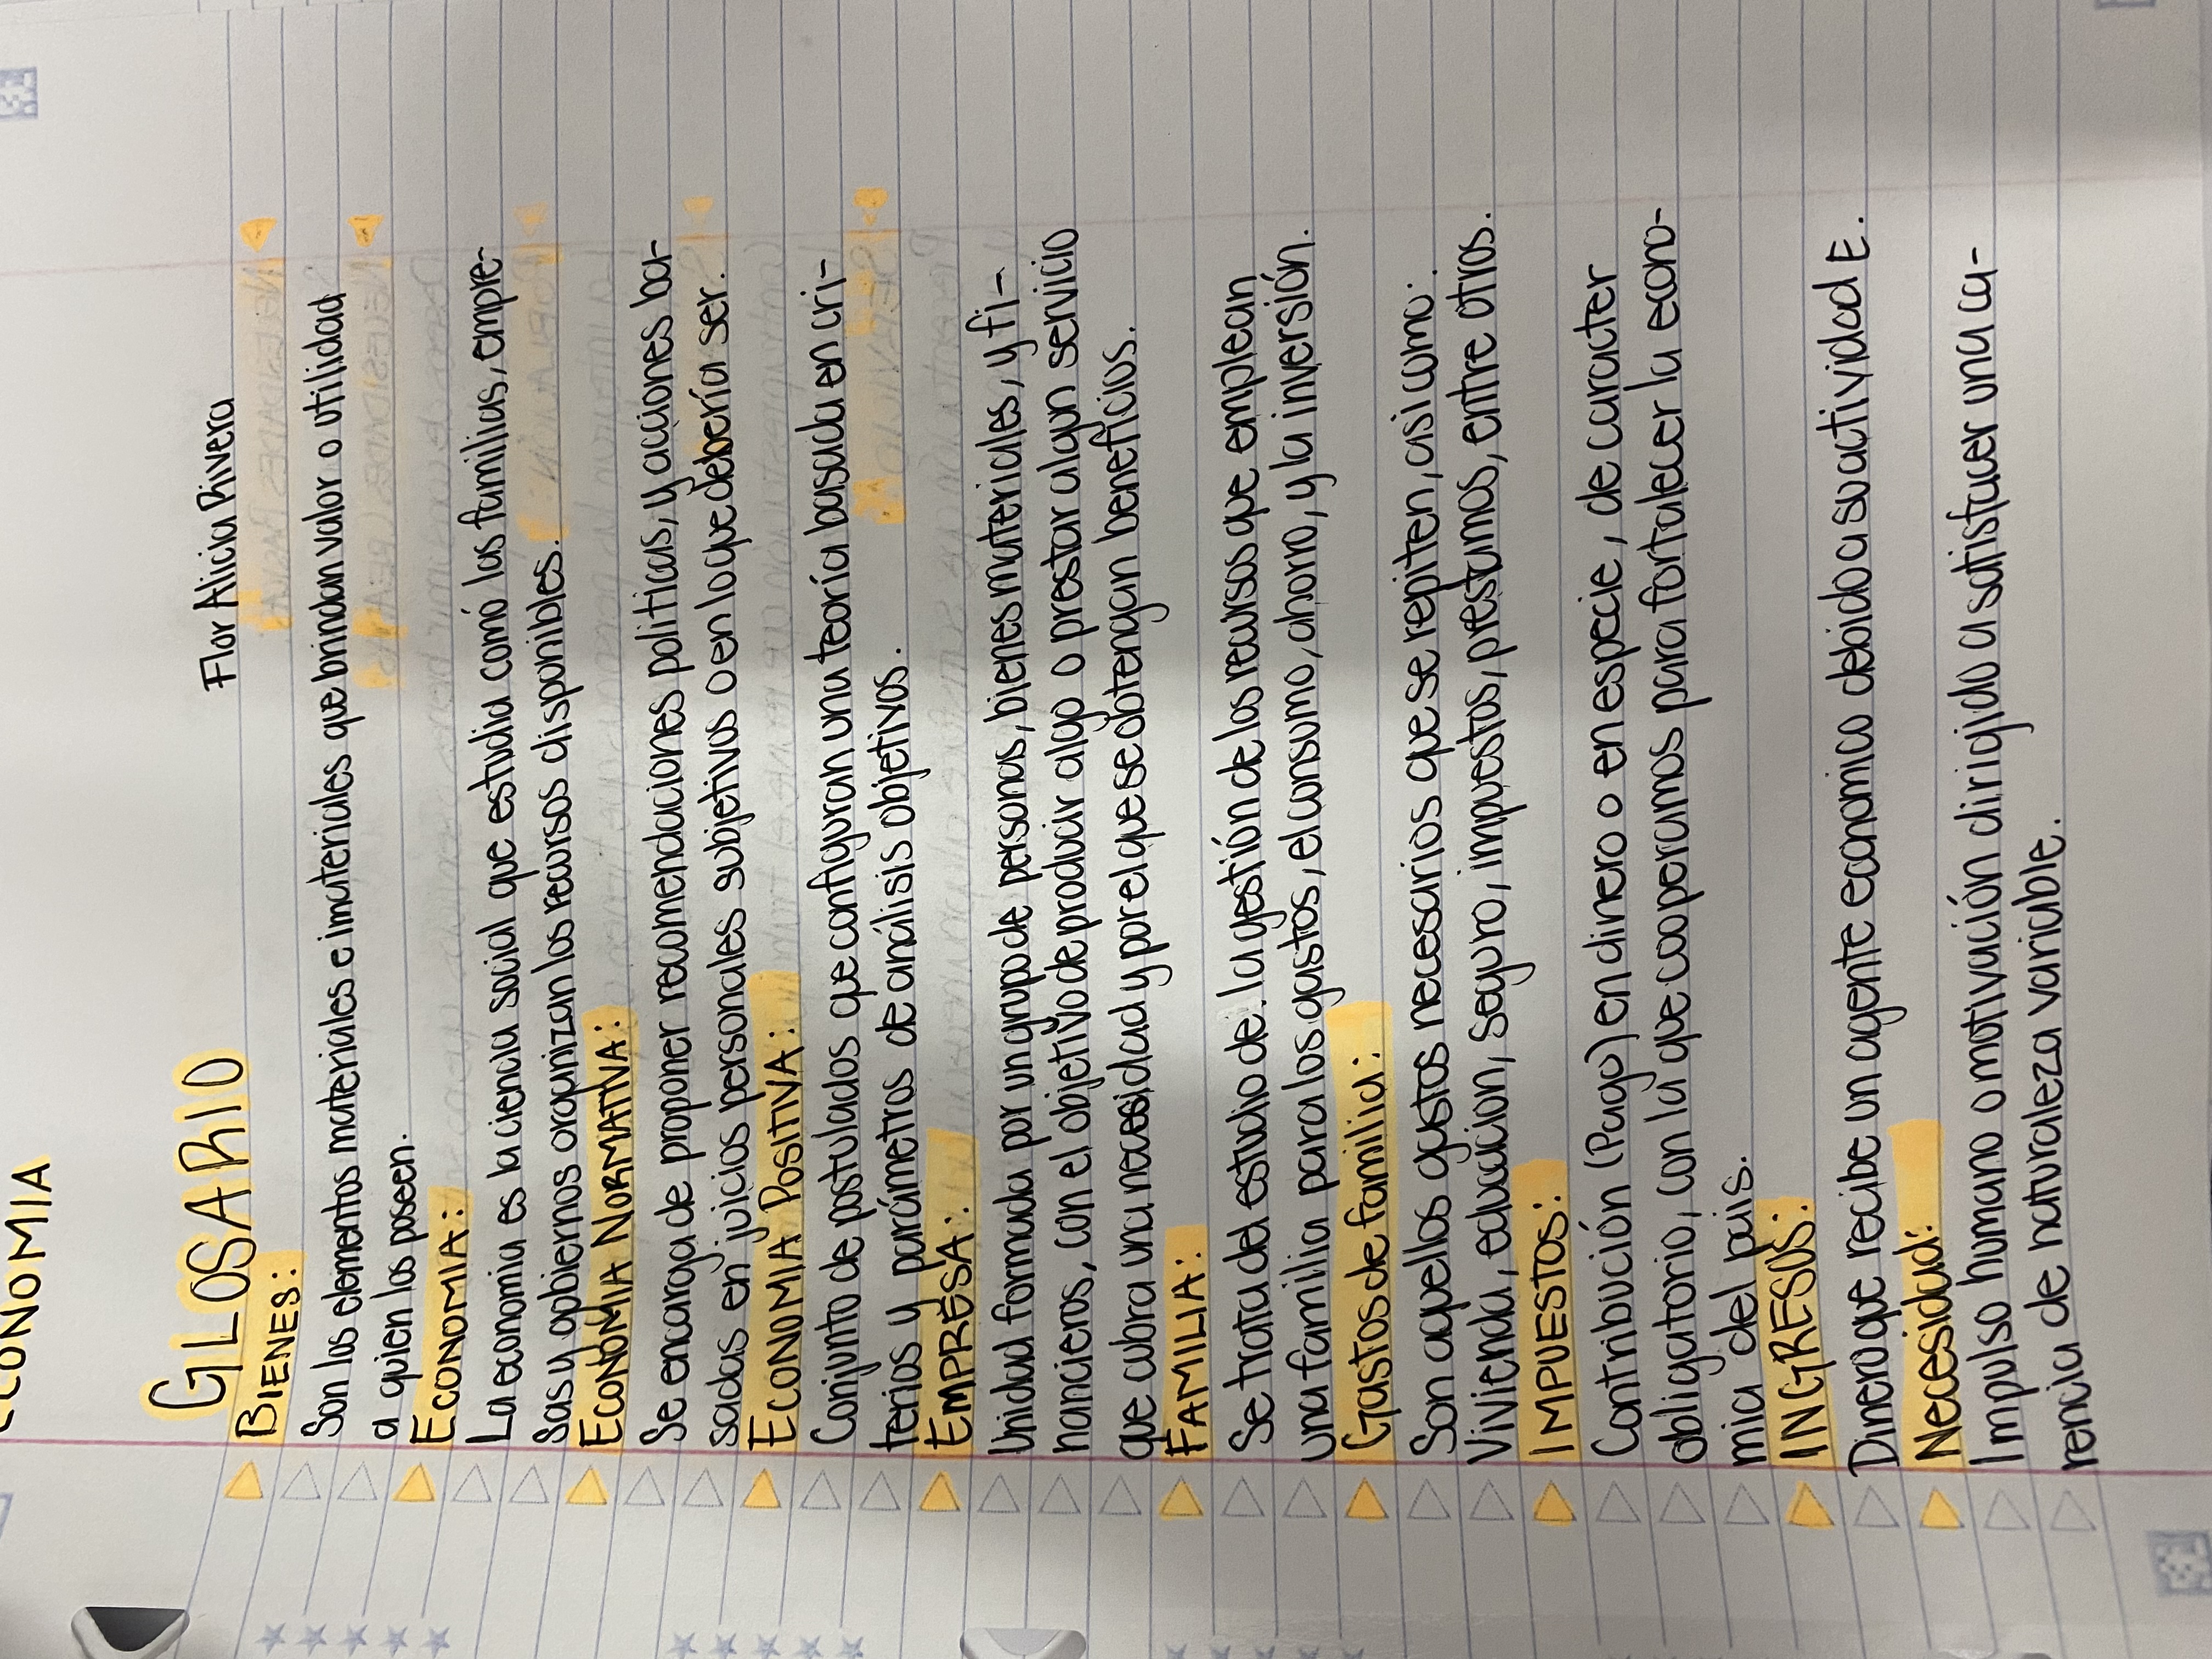 ECONOMIA
Flor Alicia Rivera
GLOSARIO
BIENES:
Son los elementos materiales e imateriales que brindan valor o utilidad
a quien los poseen.
ECONOMIA:
La economia es la ciencia social que estudia comó las familias, empre-
sas y gobiernos organizan los recursos disponibles.
ECONOMIA NORMATIVA:
Se encarga de proponer recomendaciones politicas, y acciones ba-
sadas en juicios personales subjetivos o en lo que debería ser.
ECONOMIA POSITIVA:
Conjunto de postulados que configuran una teoría basada en cri-
terios y parámetros de análisis objetivos.
EMPRESA:
Unidad formada por un grupo de personas, bienes materiales, y fi-
nancieros, con el objetivo de producir algo o prestar algun servicio
que cubra una necesidad y por el que se obtengan beneficios.
FAMILIA:
Se trata del estudio de la gestión de los recursos que emplean
una familia para los gastos, el consumo, ahorro, y la inversión.
Gastos de familia:
Son aquellos gastos necesarios que se repiten, asi como:
Vivienda, educacion, seguro, impuestos, prestamos, entre otros.
IMPUESTOS:
Contribución (Pago) en dinero o en especie, de caracter
obligatorio, con la que cooperamos para fortalecer la econo-
mia del pais.
INGRESOS:
Dinero que recibe un agente economico debido a su actividad E.
Necesidad:
Impulso humano o motivación dirigido a satisfacer una ca-
rencia de naturaleza variable.